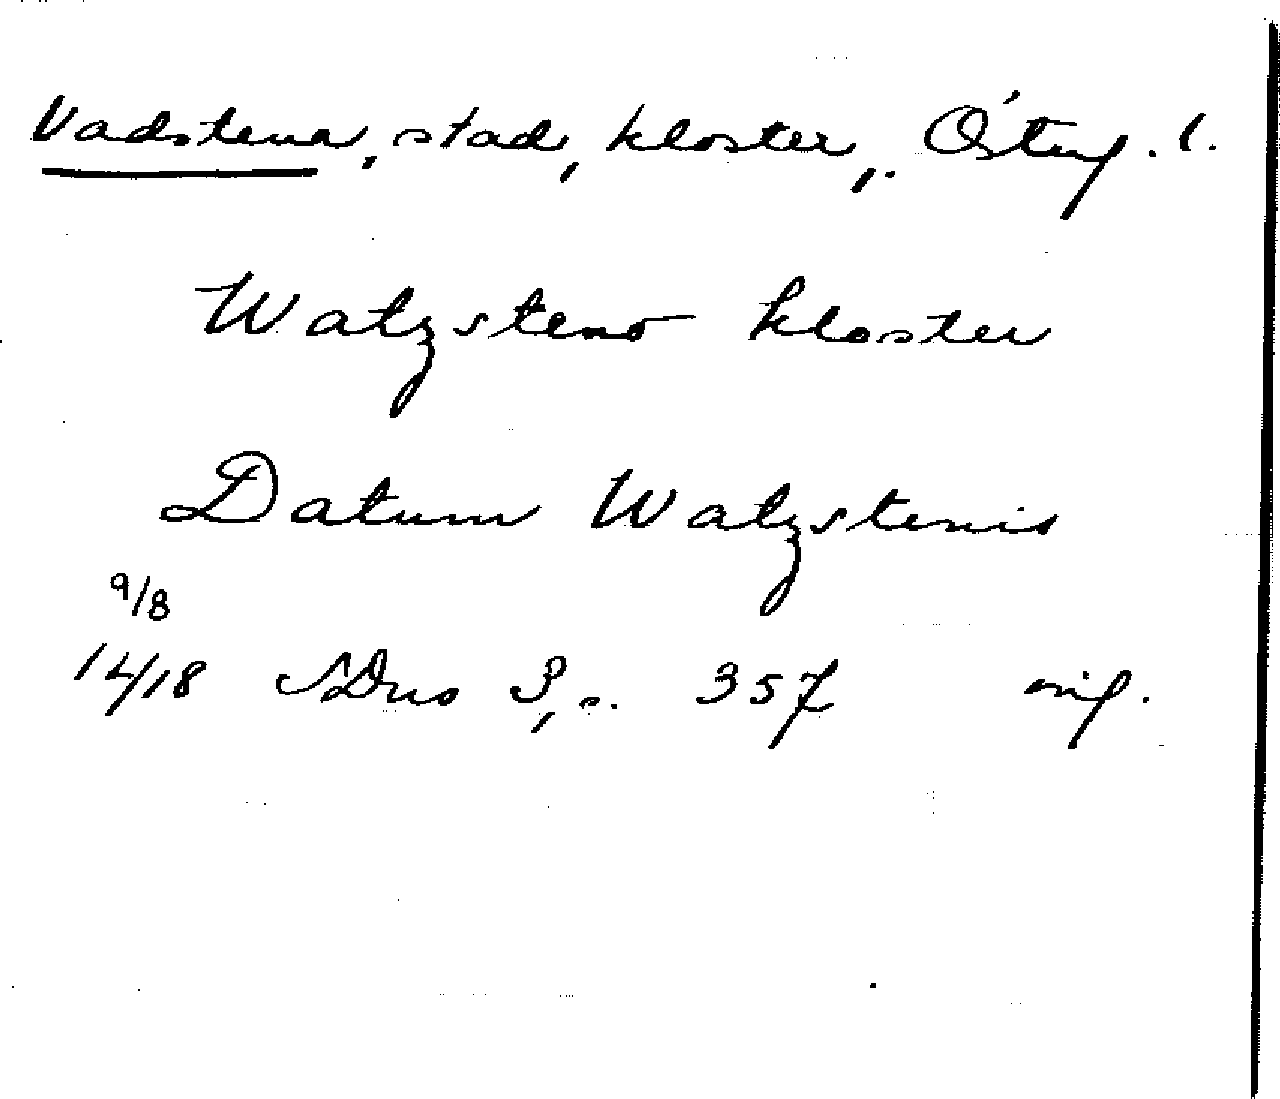 Vadstena, stad, kloster,. Östg. l.
Watzsteno kloster
Datum Watzstenis
9/8
1418 SDns 3, s. 357 orig.